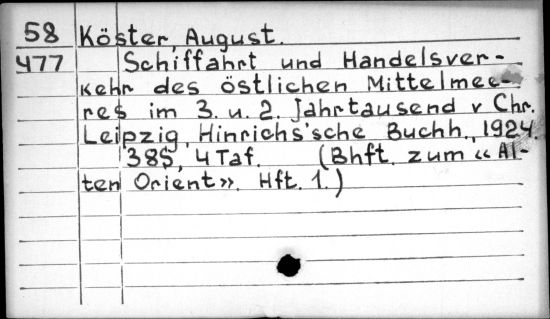 58 Köster, August.
477 Schiffahrt und Handelsver-
kehr des östlichen Mittelmee-
res im 3. u. 2. Jahrtausend v Chr.
Leipzig, Hinrichs'sche Buchh., 1924.
38S, 4 Taf. (Bhft. zum « Al-
ten Orient». Hft. 1.)